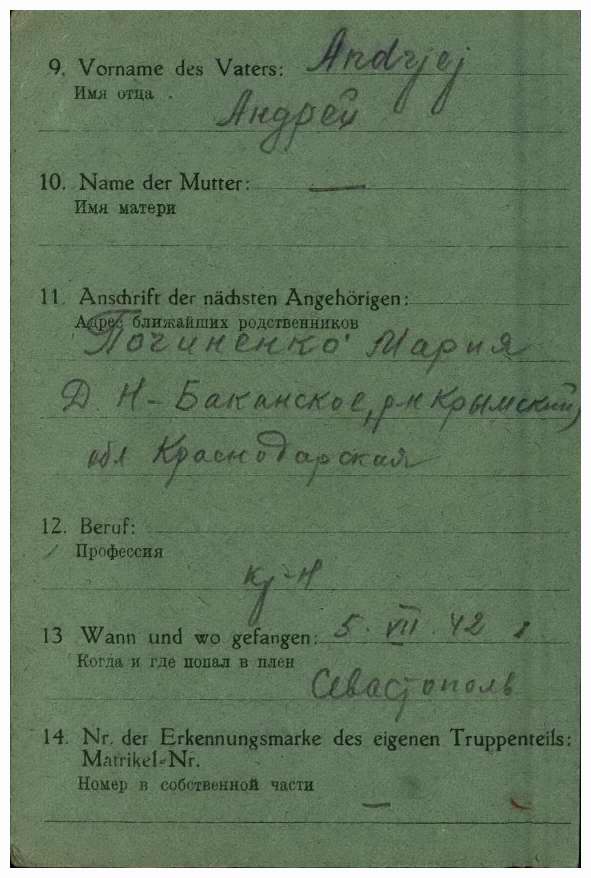 9. Vorname des Vaters: Andrjej
Имя отца
Андрей
10. Name der Mutter: —
Имя матери
11. Anschrift der nächsten Angehörigen:
Адрес ближайших родственников
Починенко Мария
Д. Н-Баканское, р-н Крымский,
обл Краснодарская
12. Beruf:
Профессия
13 Wann und wo gefangen: 5. VII. 42
Когда и где попал в плен
Севастополь
14. Nr. der Erkennungsmarke des eigenen Truppenteils:
Matrikel-Nr.
Номер в собственной части
—